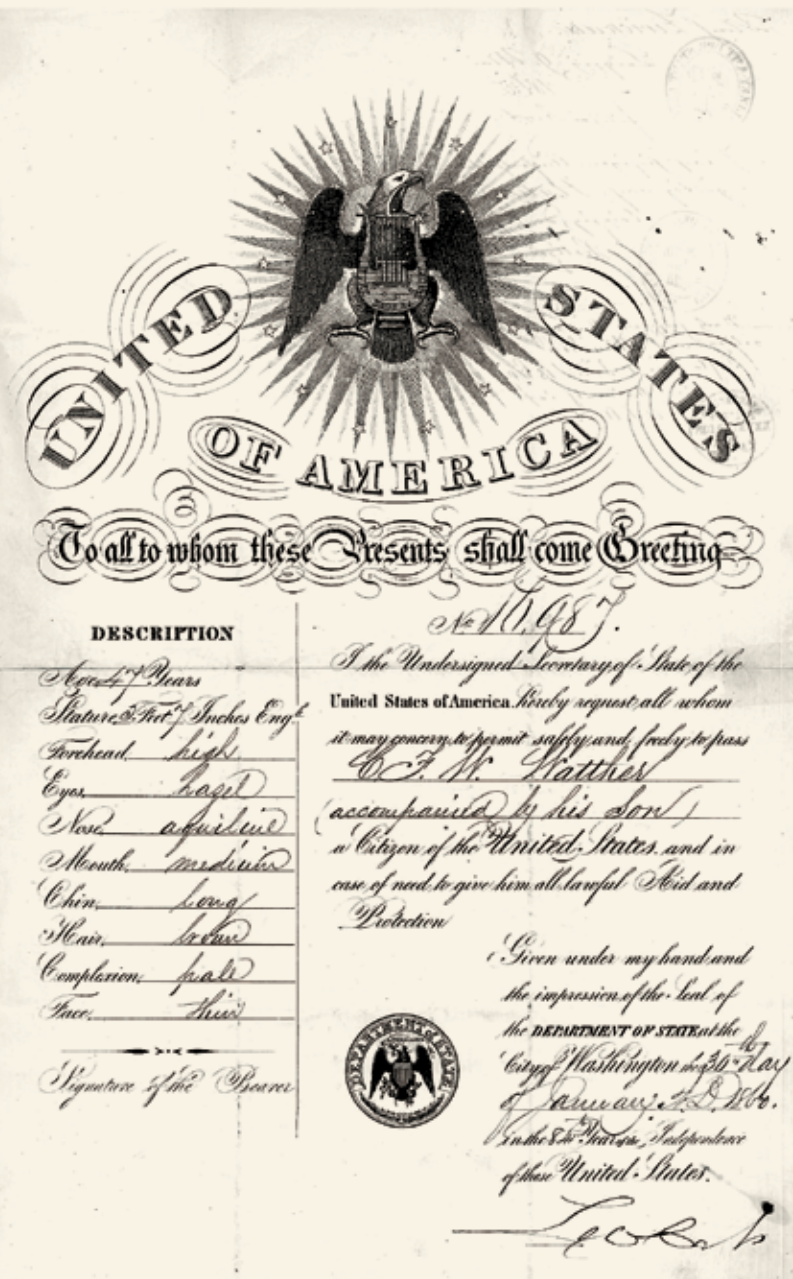 UNITED STATES
OF AMERICA
To all to whom these Presents shall come Greeting
DESCRIPTION
Age 47 Years
Stature 5 Feet 7 Inches Engh.
Forehead, high
Eyes, hazel
Nose, aquiline
Mouth, medium
Chin, long
Hair, brown
Complexion, pale
Face, thin
Signature of the Bearer
I the Undersigned Secretary of State of the
United States of America. hereby request all whom
it may concern, to permit safely and freely to pass
C. F. W. Walther
(accompanied by his Son)
a Citizen of the United States and in
case of need to give him all lawful Aid and
Protection
Given under my hand and
the impression of the Seal of
the DEPARTMENT OF STATE at the
City of Washington the 30th Day
of January A.D. 1860.
in the 84th Year of the Independence
of these United States.
DEPARTMENT OF STATE